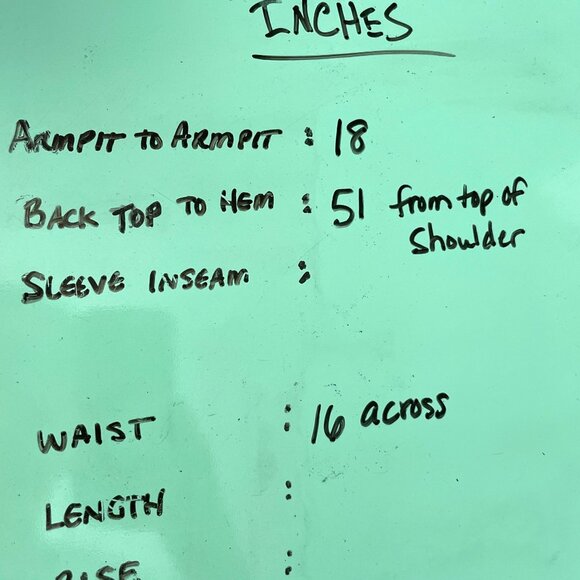 INCHES
ARMPIT TO ARMPIT : 18
BACK TOP TO HEM : 51 from top of
shoulder
SLEEVE INSEAM :
WAIST : 16 across
LENGTH :
RISE :